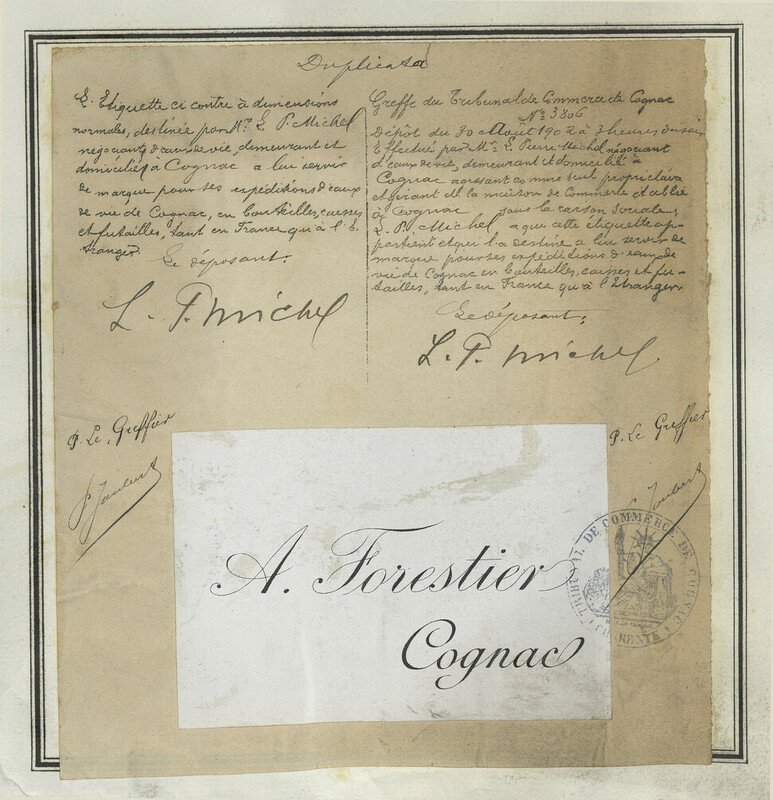 Duplicata
L'Etiquette ci contre à dimensions
normales, destinée par Mr. L. P. Michel
négociant d'eaux de vie, demeurant et
domicilié à Cognac a lui servir
de marque pour ses expéditions d'eaux
de vie de Cognac, en bouteilles, caisses
et futailles, tant en France qu'à l'E-
tranger
Le déposant:
L. P. Michel
Greffe du Tribunal de Commerce de Cognac
No 3806
Dépôt du 30 Août 1902 à 3 heures du soir
Effectué par Mr. L. Pierre Michel négociant
d'eaux de vie, demeurant et domicilié à
Cognac agissant comme seul propriétaire
et gérant de la maison de Commerce établie
à Cognac sous la raison sociale:
L. P. Michel a que cette étiquette ap-
partient et qu'il l'a destine a lui servir de
marque pour ses expéditions d'eaux de
vie de Cognac en bouteilles, caisses et fu-
tailles, tant en France qu'à l'Etranger
Le déposant:
L. P. Michel
P. Le Greffier
P. Le Greffier
A. Forestier
Cognac
TRIBUNAL DE COMMERCE DE COGNAC
(CHARENTE)